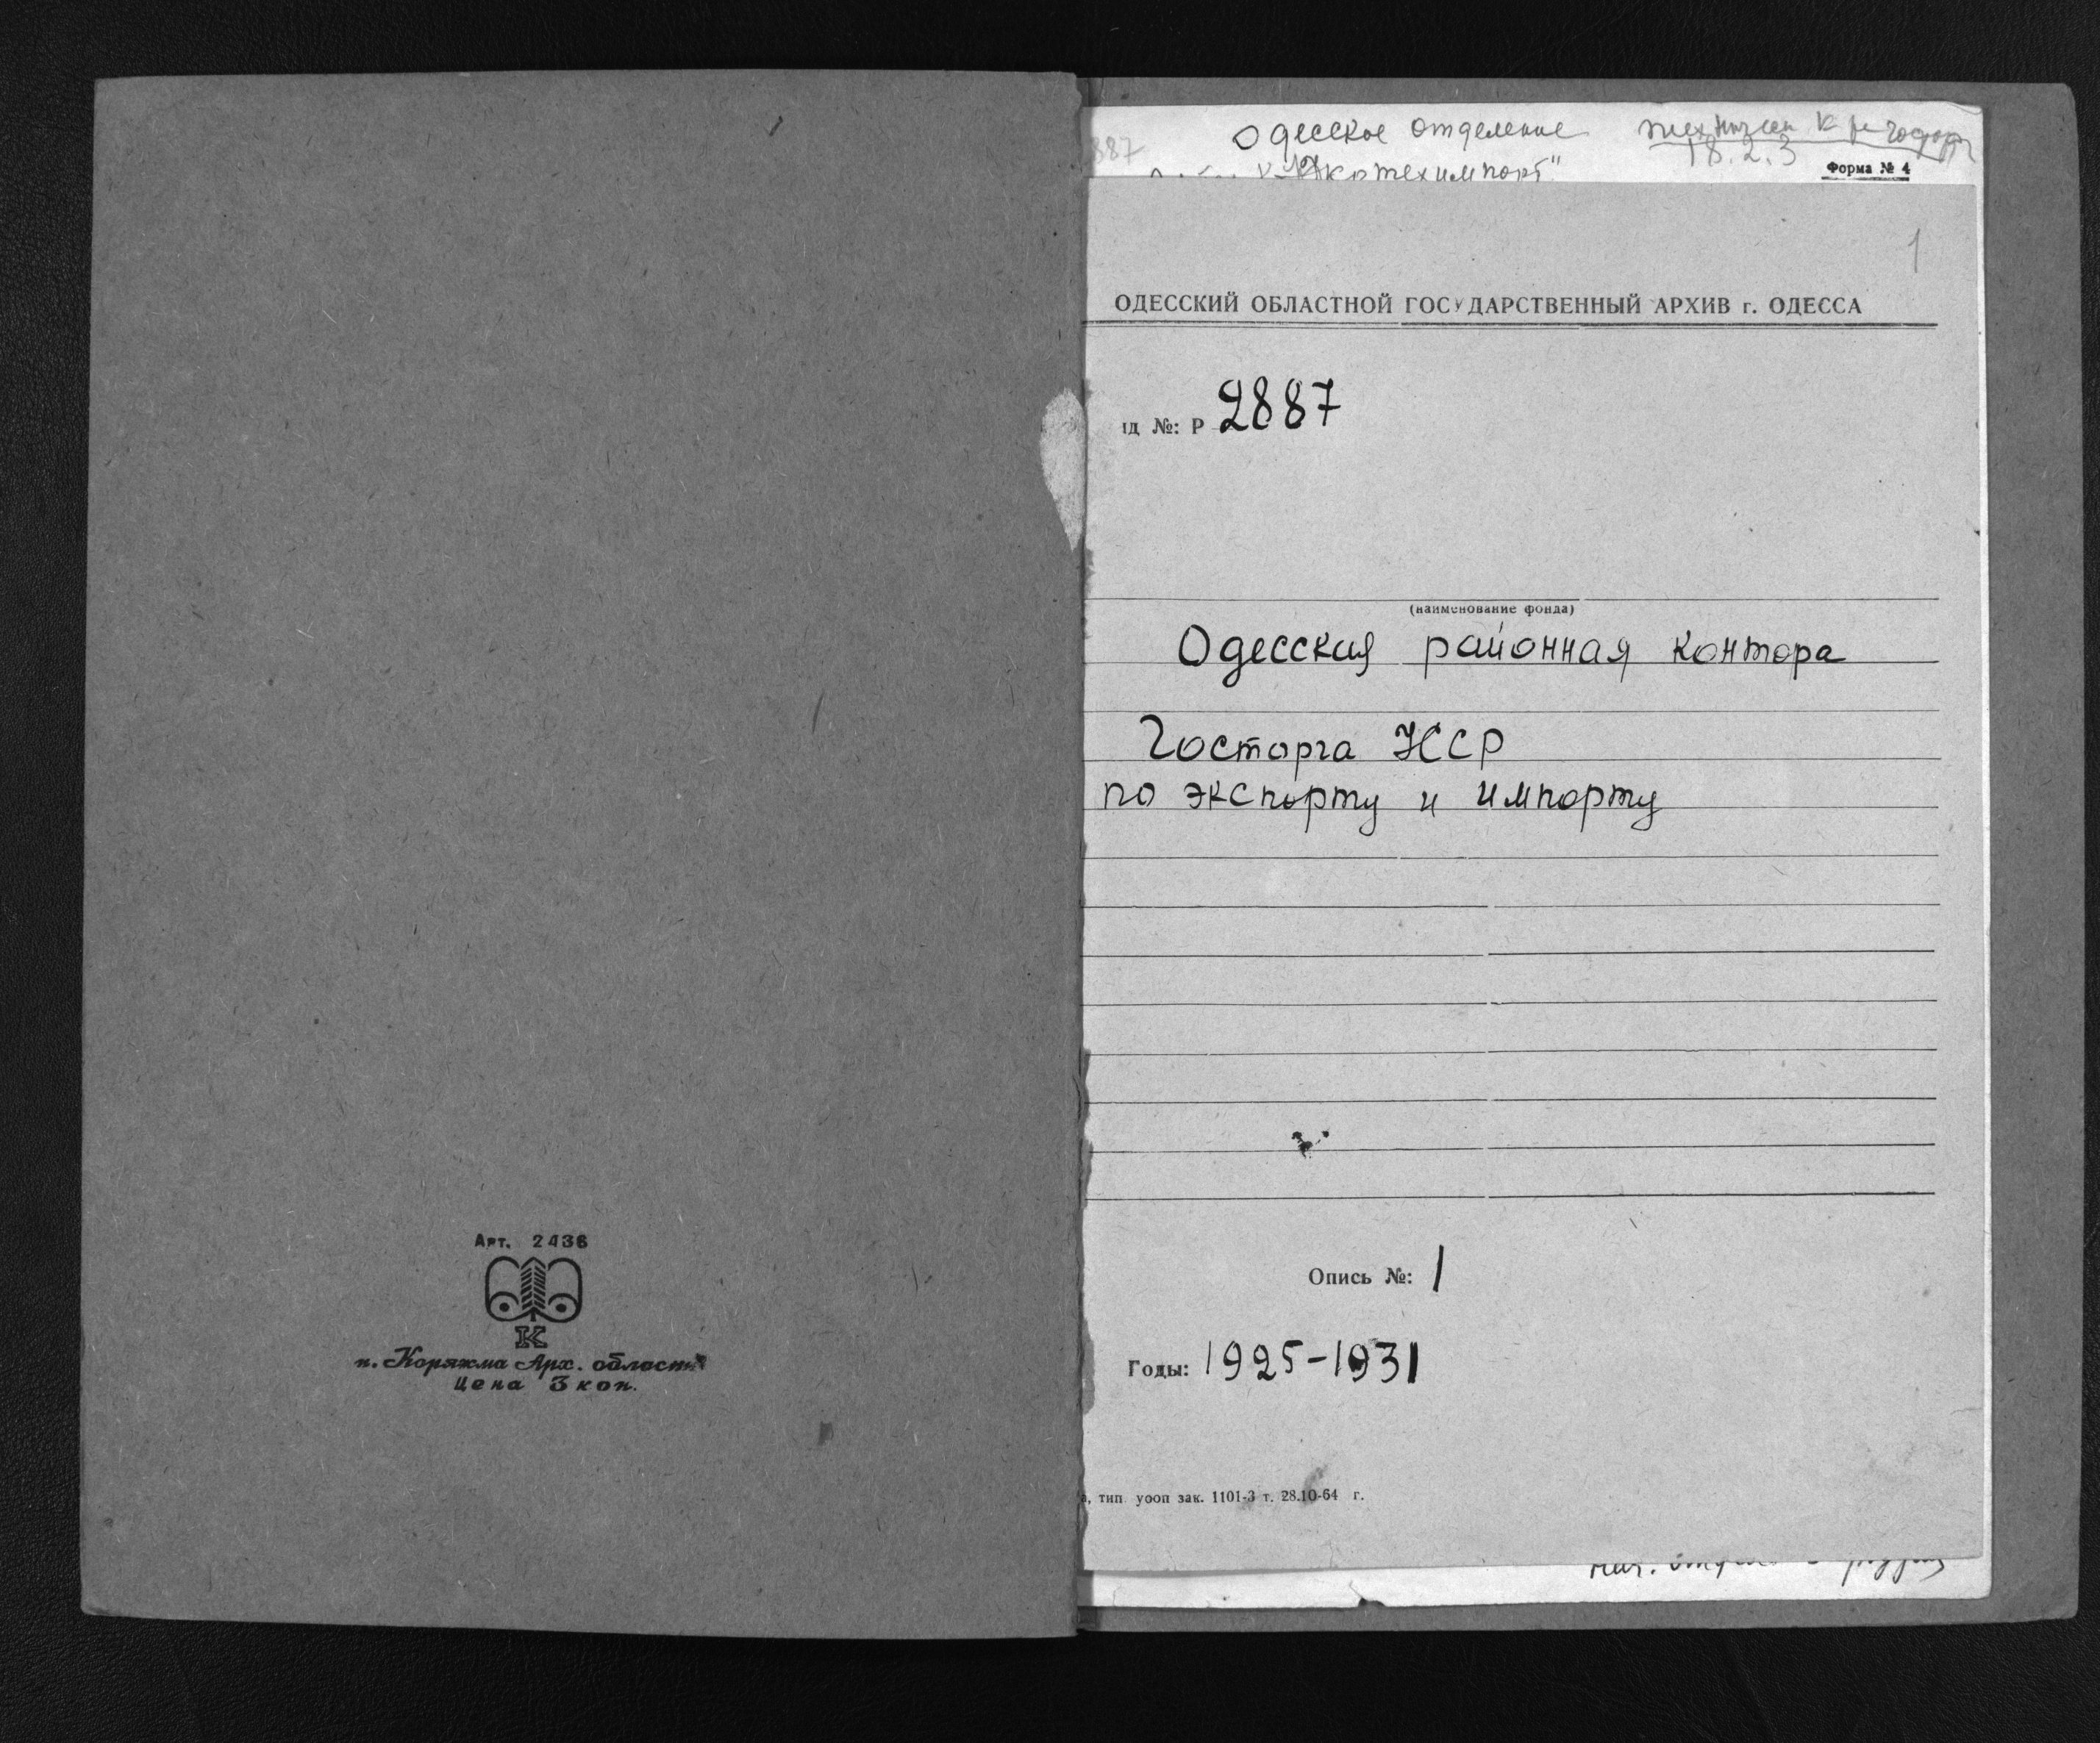 Арт. 2436
К
п. Коряжма Арх. области
Цена 3 коп.
887 Одесское отделение
18.2.3
Форма № 4
1
ОДЕССКИЙ ОБЛАСТНОЙ ГОСУДАРСТВЕННЫЙ АРХИВ г. ОДЕССА
нд №: Р 2887
(наименование фонда)
Одесская районная контора
Госторга УССР
по экспорту и импорту
Опись №: 1
Годы: 1925-1931
а, тип уооп зак. 1101-3 т. 28.10-64 г.